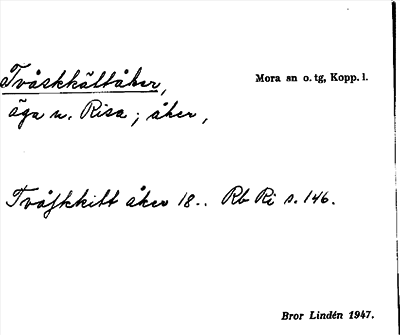 Tvåskkältåker,
Mora sn o. tg, Kopp. l.
äga u. Risa ; åker ,
Tvåſkkiltt åker 18.. Rb Ri s. 146.
Bror Lindén 1947.